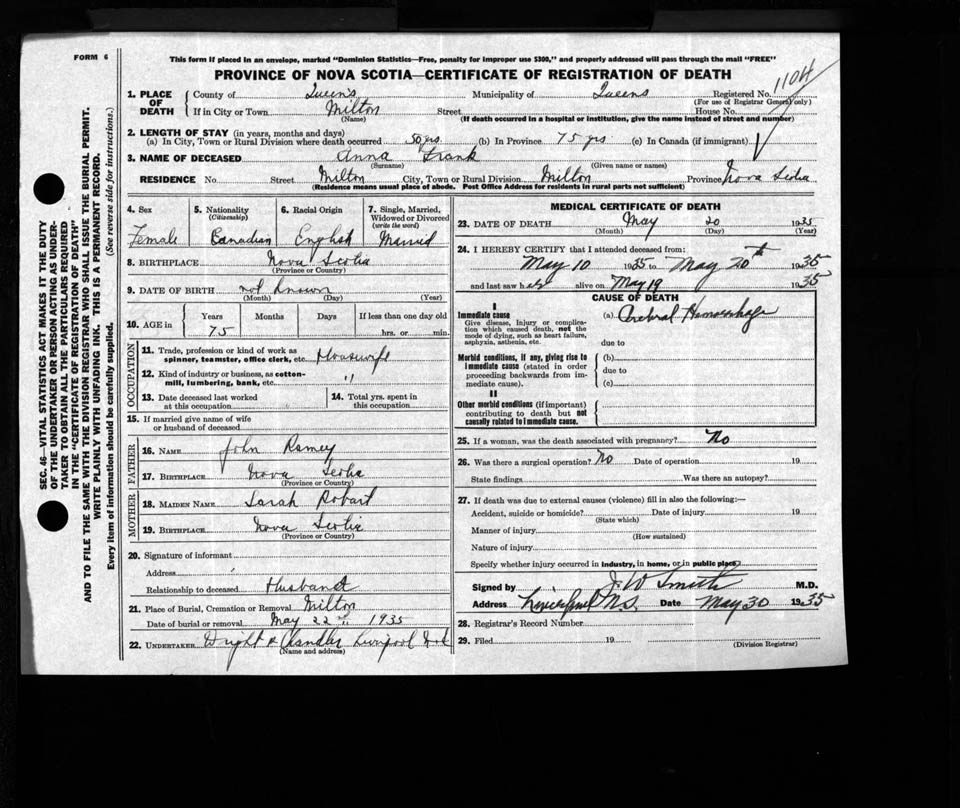 FORM 6
This form if placed in an envelope, marked "Dominion Statistics—Free, penalty for improper use $300," and properly addressed will pass through the mail "FREE"
PROVINCE OF NOVA SCOTIA—CERTIFICATE OF REGISTRATION OF DEATH
1104
SEC. 46—VITAL STATISTICS ACT MAKES IT THE DUTY
OF THE UNDERTAKER OR PERSON ACTING AS UNDER-
TAKER TO OBTAIN ALL THE PARTICULARS REQUIRED
IN THE "CERTIFICATE OF REGISTRATION OF DEATH"
AND TO FILE THE SAME WITH THE DIVISION REGISTRAR WHO SHALL ISSUE THE BURIAL PERMIT.
WRITE PLAINLY WITH UNFADING INK. THIS IS A PERMANENT RECORD.
Every item of information should be carefully supplied. (See reverse side for instructions.)
1. PLACE OF DEATH
County of Queens Municipality of Queens Registered No.
(For use of Registrar General only)
If in City or Town Milton Street House No.
(Name) (If death occurred in a hospital or institution, give the name instead of street and number)
2. LENGTH OF STAY (in years, months and days)
(a) In City, Town or Rural Division where death occurred 50 yrs (b) In Province 75 yrs (c) In Canada (if immigrant)
3. NAME OF DECEASED Anna Frank
(Surname) (Given name or names)
RESIDENCE No Street Milton City, Town or Rural Division Milton Province Nova Scotia
(Residence means usual place of abode. Post Office Address for residents in rural parts not sufficient)
4. Sex Female
5. Nationality (Citizenship) Canadian
6. Racial Origin English
7. Single, Married, Widowed or Divorced (write the word) Married
8. BIRTHPLACE Nova Scotia
(Province or Country)
9. DATE OF BIRTH not known
(Month) (Day) (Year)
10. AGE in Years 75 Months Days If less than one day old
hrs. or min.
OCCUPATION
11. Trade, profession or kind of work as
spinner, teamster, office clerk, etc. Housewife
12. Kind of industry or business, as cotton-
mill, lumbering, bank, etc. "
13. Date deceased last worked
at this occupation
14. Total yrs. spent in
this occupation
15. If married give name of wife
or husband of deceased
FATHER
16. NAME John Ramey
17. BIRTHPLACE Nova Scotia
(Province or Country)
MOTHER
18. MAIDEN NAME Sarah Robart
19. BIRTHPLACE Nova Scotia
(Province or Country)
20. Signature of informant
Address
Relationship to deceased Husband
21. Place of Burial, Cremation or Removal Milton
Date of burial or removal May 22 1935
22. UNDERTAKER Liverpool
(Name and address)
MEDICAL CERTIFICATE OF DEATH
23. DATE OF DEATH May 20 1935
(Month) (Day) (Year)
24. I HEREBY CERTIFY that I attended deceased from:
May 10 1935 to May 20th 1935
and last saw her alive on May 19 1935
CAUSE OF DEATH
I
Immediate cause
Give disease, injury or complica-
tion which caused death, not the
mode of dying, such as heart failure,
asphyxia, asthenia, etc.
(a) Cerebral Hemorrhage
due to
Morbid conditions, if any, giving rise to
immediate cause (stated in order
proceeding backwards from im-
mediate cause).
(b)
due to
(c)
II
Other morbid conditions (if important)
contributing to death but not
causally related to immediate cause.
25. If a woman, was the death associated with pregnancy? No
26. Was there a surgical operation? No Date of operation 19
State findings Was there an autopsy?
27. If death was due to external causes (violence) fill in also the following:—
Accident, suicide or homicide? Date of injury 19
(State which)
Manner of injury
(How sustained)
Nature of injury
Specify whether injury occurred in industry, in home, or in public place
Signed by J. W Smith M.D.
Address Liverpool N.S. Date May 30 1935
28. Registrar's Record Number
29. Filed 19
(Division Registrar)